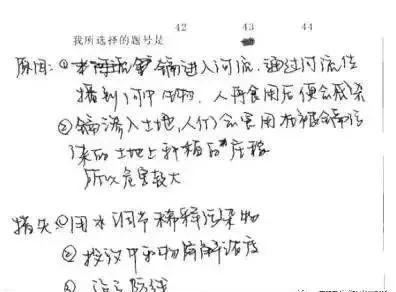 42 43 44
我所选择的题号是
原因:①镉进入河流,通过河流传
播到河中生物,人再食用后便会感染
②镉渗入土地,人们会食用在被镉污
染的土地上种植的庄稼
所以危害较大
措失:①用水调节稀释污染物
②投放中和物 解浓度
③ 防线